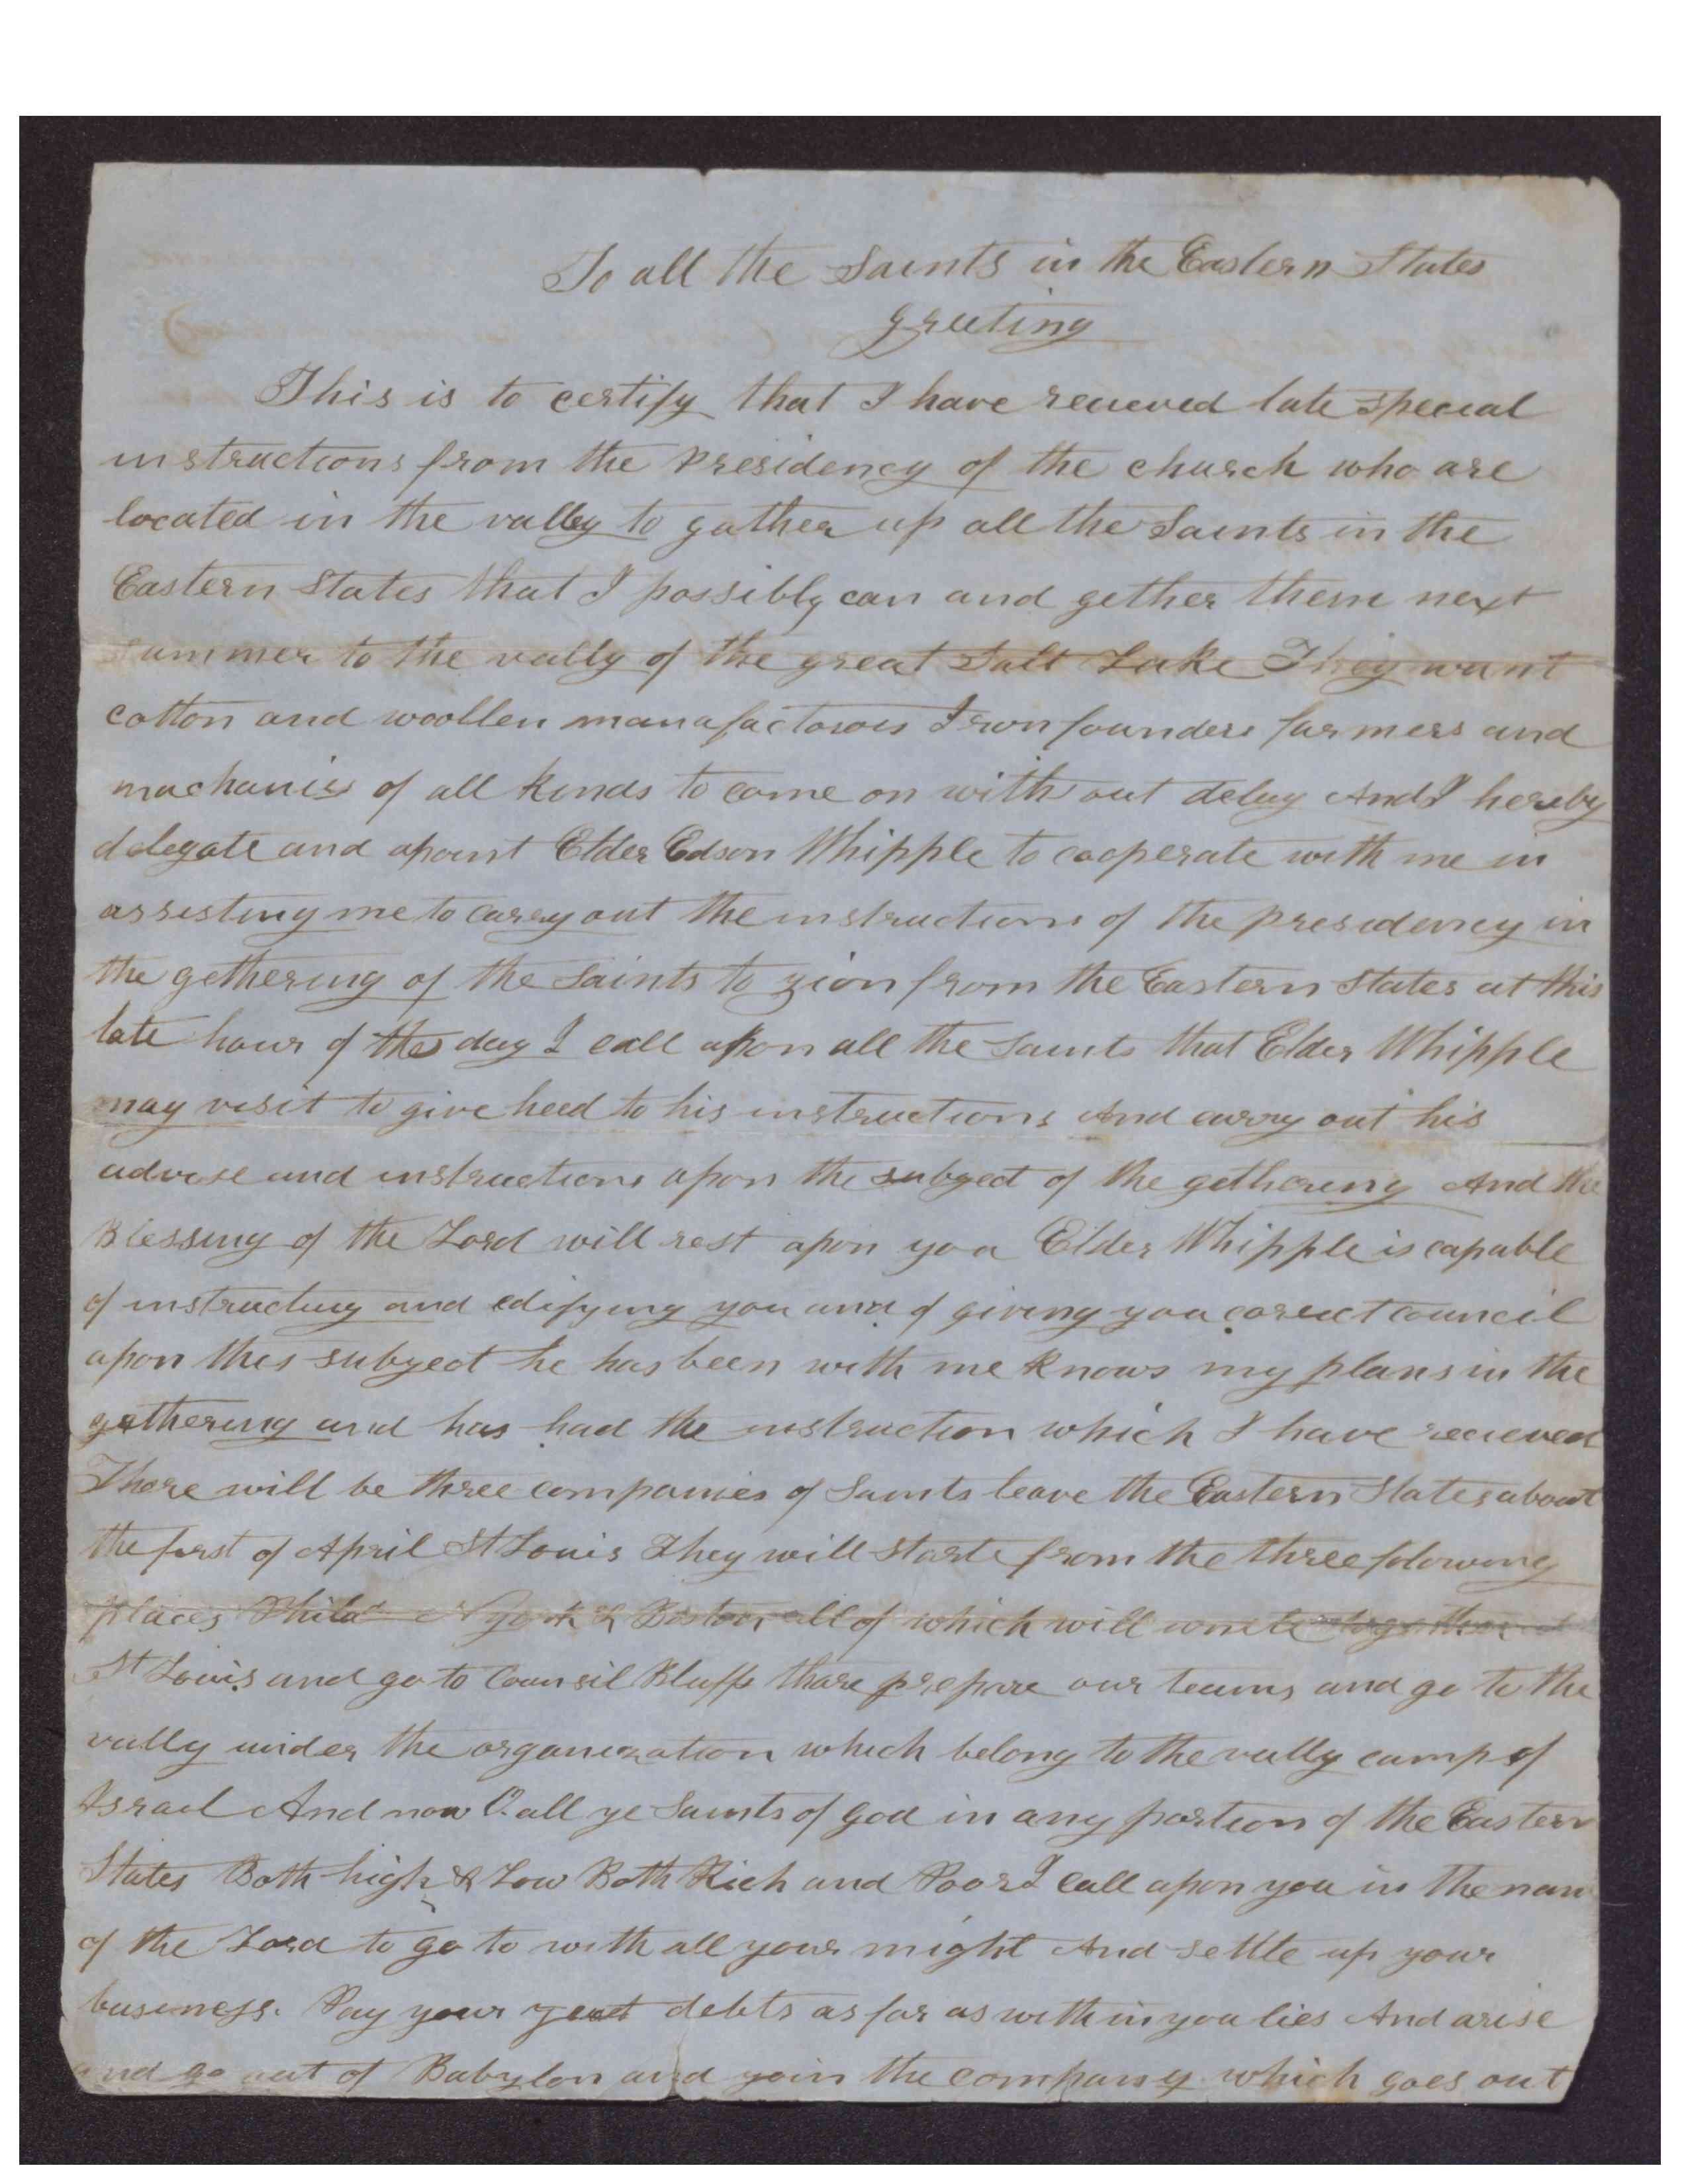 To all the Saints in the Eastern States
greeting
This is to certify that I have recieved late special
instructions from the Presidency of the church who are
located in the valley to gather up all the Saints in the
Eastern States that I possibly can and gether them next
Summer to the vally of the great Salt Lake They want
cotton and woollen manafactorois Iron founders farmers and
machanics of all kinds to come on with out delay And I hereby
delegate and apoint Elder Edson Whipple to cooperate with me in
assisting me to carry out the instructions of the presidency in
the gethering of the Saints to zion from the Eastern States at this
late hour of the day I call upon all the Saints that Elder Whipple
may visit to give heed to his instructions And carry out his
advise and instructions upon the subject of the gethering And the
Blessing of the Lord will rest apon you Elder Whipple is capable
of instructing and edifying you and of giving you corect council
upon this subject he has been with me knows my plans in the
gethering and has had the instruction which I have recieved
Thare will be three companies of Saints leave the Eastern States about
the first of April St Louis They will starte from the three folowing
places Philad N york & Boston all of which will unite together at
St Louis and go to Counsil Bluffs thare prepare our teams and go to the
vally under the organization which belong to the vally camp of
Israel And now O all ye Saints of god in any portion of the Eastern
States Both high & Low Both Rich and Poor I call apon you in the nam
of the Lord to go to with all your might And settle up your
business. Pay your just debts as far as with in you lies And arise
and go out of Babylon and join the company which goes out